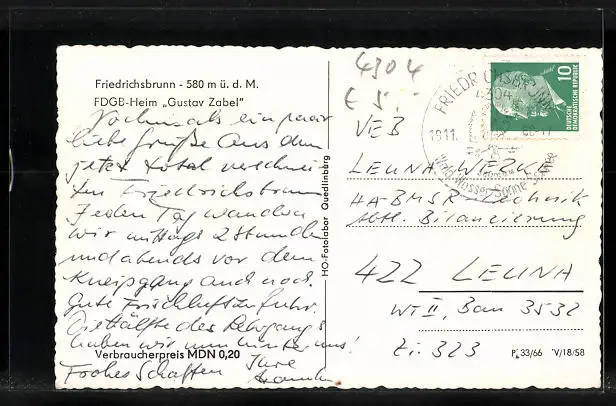 Friedrichsbrunn - 580 m ü. d. M.
FDGB-Heim „Gustav Zabel"
Nochmals ein paar
liebe Grüße aus dem
jetzt total verschnei-
ten Friedrichsbrunn
Jeden Tag wandern
wir mittags 2 Stunden
und abends vor dem
Kneipgang auch noch.
Gute Frischluftzufuhr.
Die Hälfte des Lehrgangs
haben wir nun hinter uns!
Frohes Schaffen Ihre
Verbraucherpreis MDN 0,20
HO-Fotolabor Quedlinburg
4304
VEB
LEUNA WERKE
HA-BMSR-Technik
Abt. Bilanzierung
422 LEUNA
WT II, Bau 3532
Zi. 323
P 33/66 V/18/58
FRIEDRICHSBRUNN
4304
19.11.
10
DEUTSCHE
DEMOKRATISCHE REPUBLIK